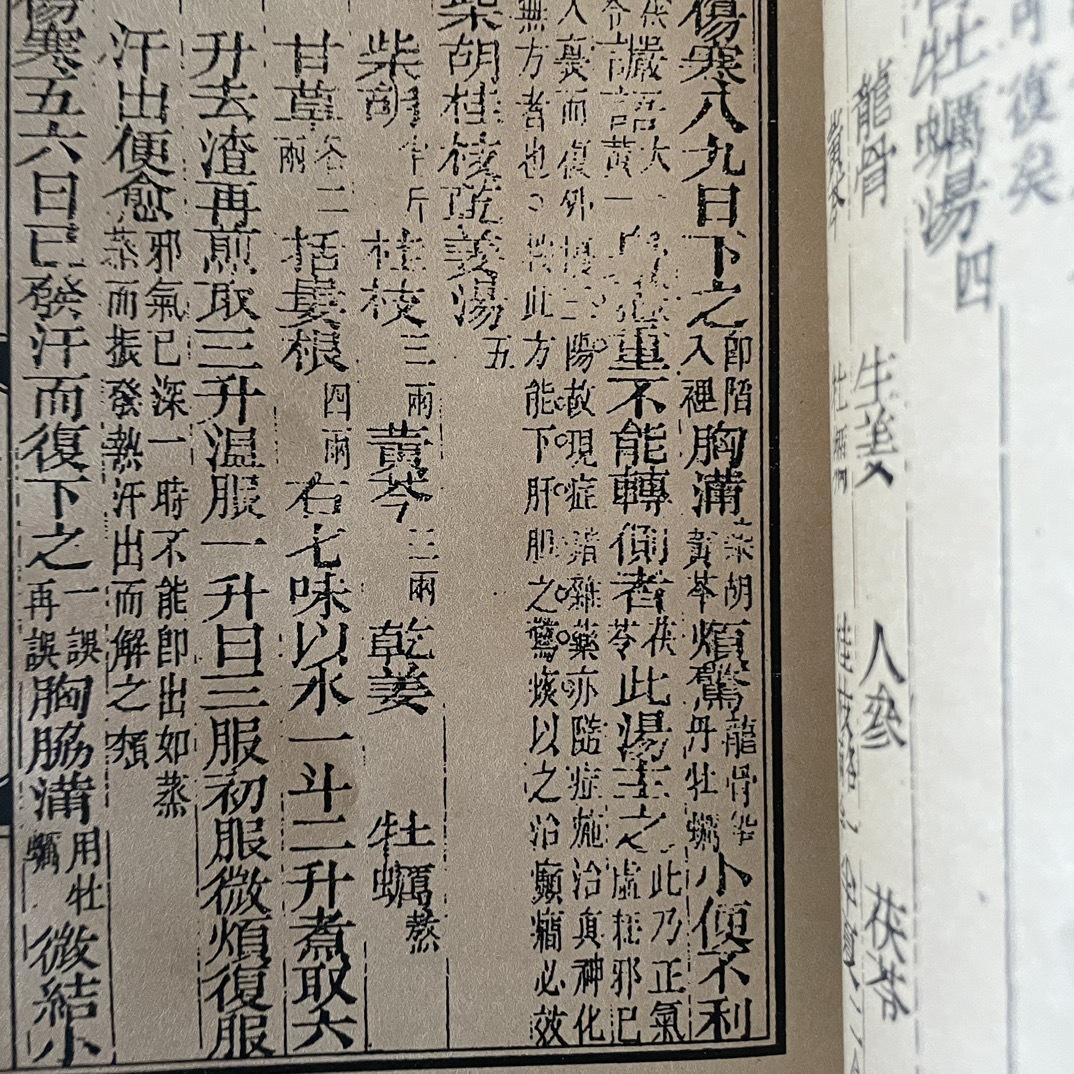 復矣
牡蠣湯四
龍骨 生姜 人參 茯苓
傷寒八九日下之即陷入裡胸滿柴胡黃芩煩驚龍骨丹牡蠣小便不利
語大黃一重不能轉側者茯苓此湯主之此乃正氣虛邪已
人裏而復外三陽故現症錯雜藥亦隨症施治真神化
無方者也。按此方能下肝胆之驚痰以之治癲癎必效
柴胡桂枝乾姜湯五
柴胡半斤 桂枝三兩 黃芩三兩 乾姜 牡蠣熬
甘草各二兩 括蔞根四兩 右七味以水一斗二升煮取六
升去渣再煎取三升温服一升日三服初服微煩復服
汗出便愈邪氣已深一時不能即出如蒸蒸而振發熱汗出而解之類
傷寒五六日已發汗而復下之一誤再誤胸脇滿用牡蠣微結小